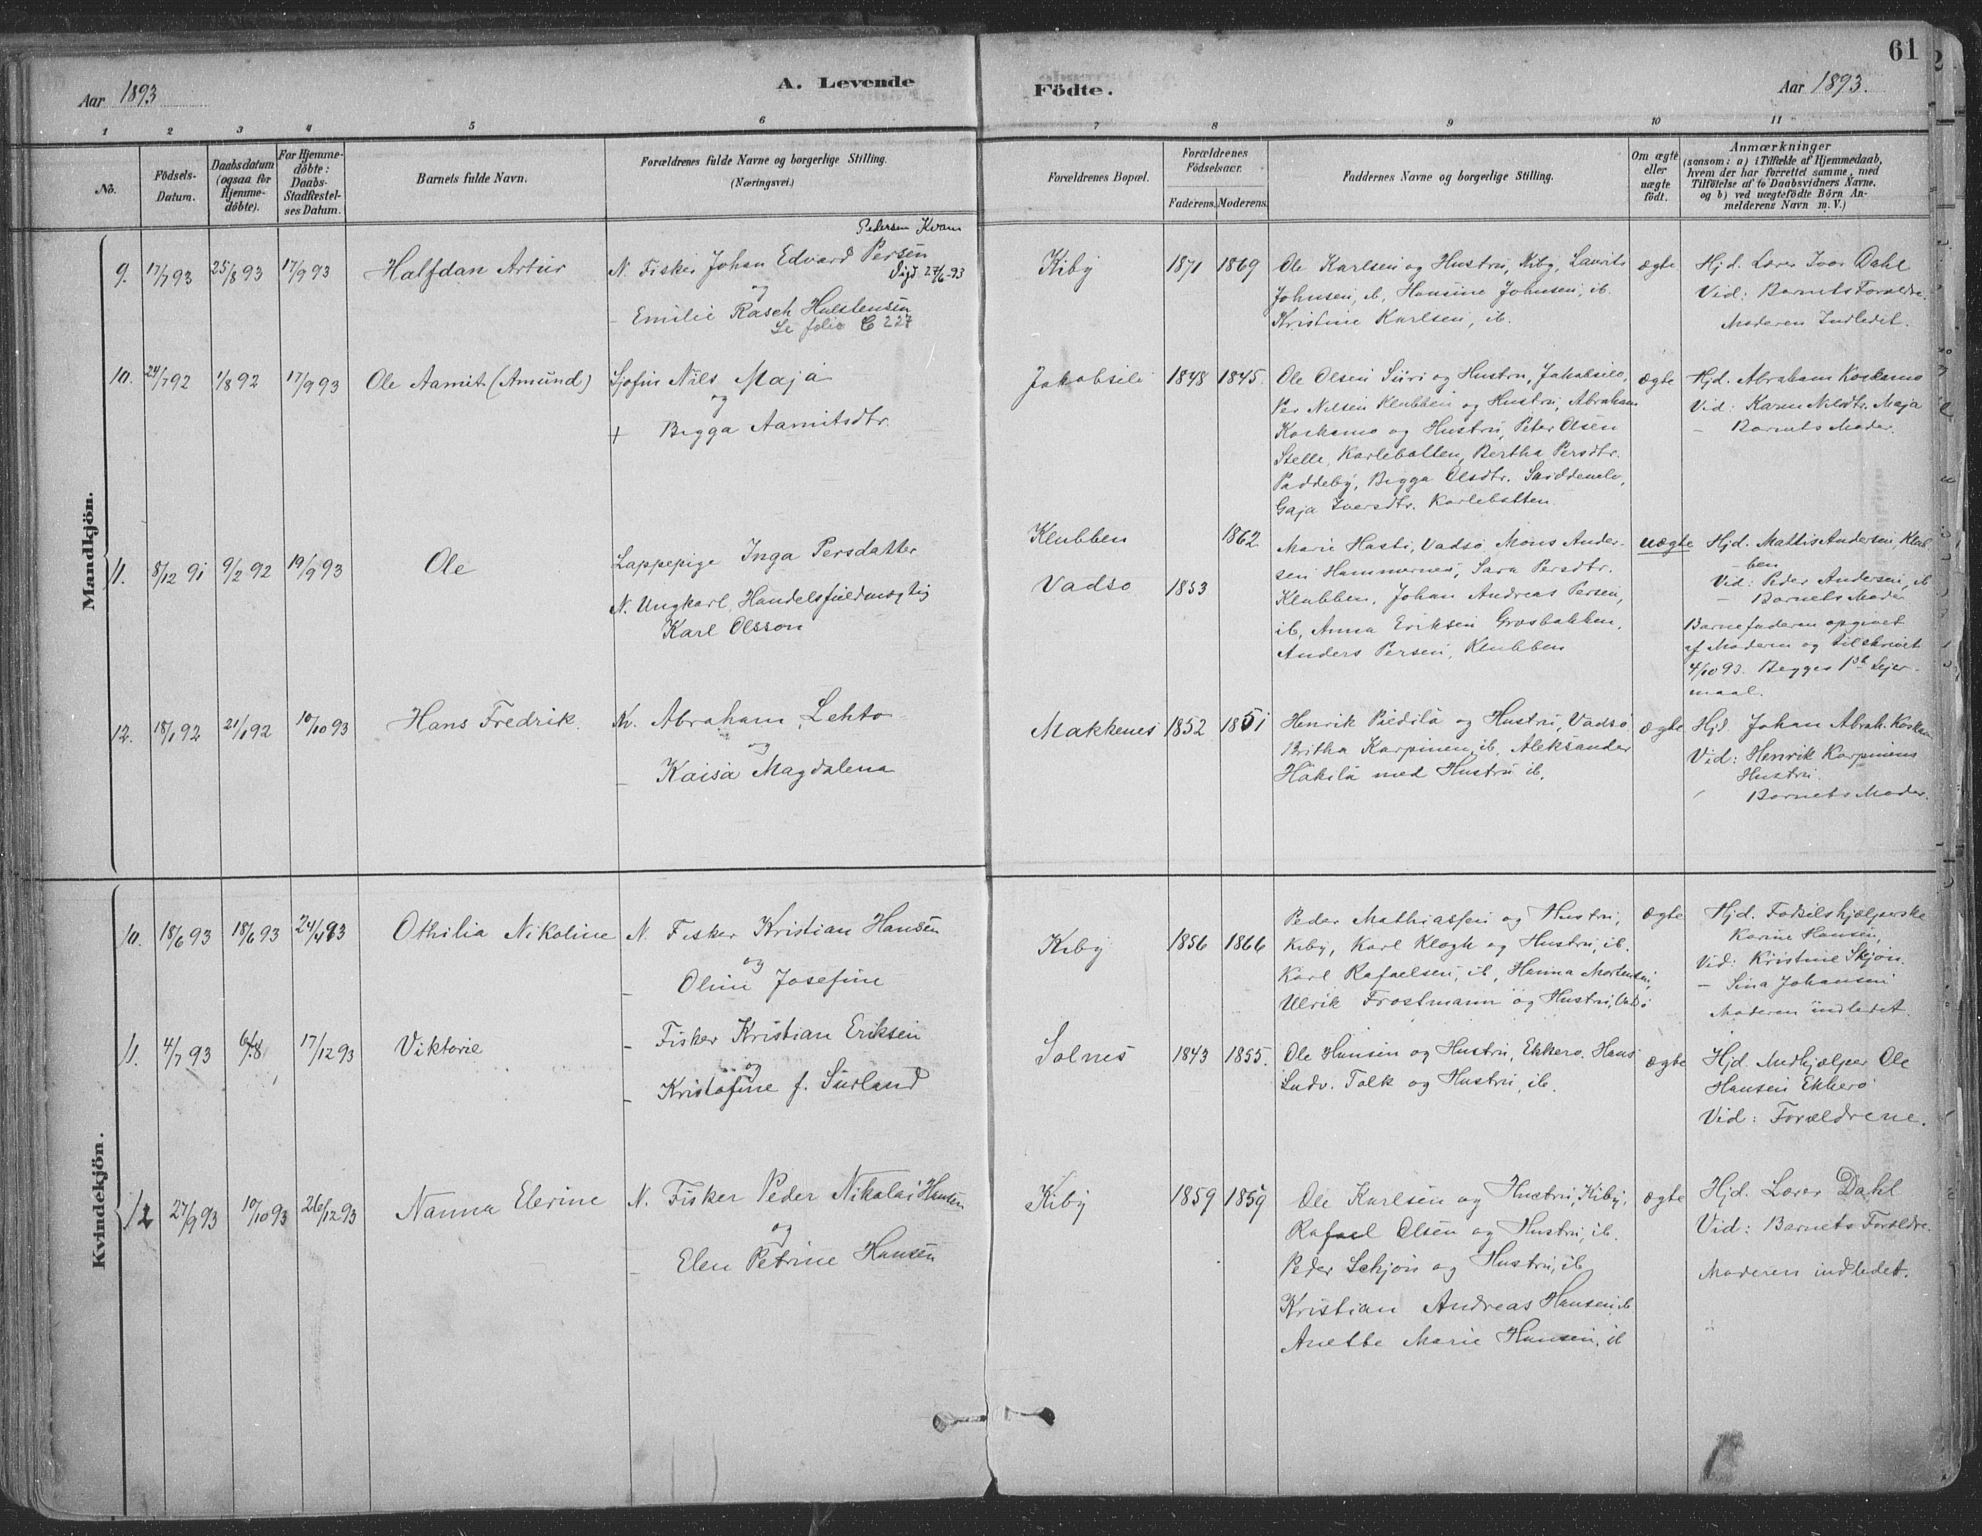 61
Aar 1893
A. Levende
Födte.
Aar 1893.
1 2 3 4 5 6 7 8 9 10 11
No.
Födsels-Datum.
Daabsdatum (ogsaa for Hjemme-döbte).
For Hjemme-döbte: Daabs-Stadfæstel-ses Datum.
Barnets fulde Navn.
Forældrenes fulde Navne og borgerlige Stilling.
(Næringsvei.)
Forældrenes Bopæl.
Forældrenes Födselsaar.
Faderens. Moderens.
Faddernes Navne og borgerlige Stilling.
Om ægte eller uægte födt.
Anmærkninger
(saasom: a) i Tilfælde af Hjemmedaab, hvem der har forrettet samme, med Tilföielse af to Daabsvidners Navne, og b) ved uægtefödte Börn An-melderens Navn m. V.)
Mandkjön.
9. 17/7 93 25/8 93 17/9 93 Halfdan Artur
Pedersen Kvam
N. Fisker Johan Edvard Persen
Vigd 27/6-93
og
- Emilie Rasch Hulstensen
Se folio C 227
Kiby 1871 1869
Ole Karlsen og Hustru, Kiby, Laurits
Johnsen, ib, Hansine Johnsen, ib.
Kristine Karlsen, ib.
ægte
Hjd. Lærer Ivar Dahl
Vid: Barnets Forældre.
Moderen Indledet.
10. 24/7 92 1/8 92 17/9 93 Ole Aamit (Amund)
Sjøfin Nils Maja
og
+ Bigga Aamitsdtr.
Jakobselv 1848 1845.
Ole Olsen Siiri og Hustru, Jakobselv,
Per Nilsen Klubben og Hustru, Abraham
Koskamo og Hustru, Peter Olsen
Stelle, Karlebotten, Bertha Persdtr.
Paddeby, Bigga Olsdtr.
Gaja Iversdtr. Karlebotten
ægte
Hjd. Abraham Koskamo
Vid: Karen Nilsdtr. Maja
- Barnets Moder.
11. 8/12 91 9/2 92 19/9 93 Ole
Lappepige Inga Persdatter
N. Ungkarl, Handelsfuldmægtig
Karl Olsson
Klubben 1862
Vadsø 1853
Marie Hasti, Vadsø, Mons Ander-
sen Hammernes, Sara Persdtr.
Klubben, Johan Andreas Persen,
ib, Anna Eriksen Græsbakken,
Anders Persen, Klubben
uægte
Hjd. Mattis Andersen, Klub-
ben
Vid: Peder Andersen, ib
- Barnets Moder
Barnefaderen opgivet
af Moderen og tilskrevet
4/10 93. Begges 1ste Leier-
maal.
12. 18/1 92 21/1 92 10/10 93 Hans Fredrik
Kv. Abraham Lehto
og
- Kaisa Magdalena
Makkenes 1852 1851
Henrik Piedilä og Hustru, Vadsø
Britha Karpinen, ib, Aleksander
Häkilä med Hustru ib.
ægte
Hjd. Johan Abrah. Koskam
Vid: Henrik Karpinens
Hustru.
Barnets Moder.
Kvindekjön.
10. 18/6 93 18/6 93 Othilia Nikoline
N. Fisker Kristian Hansen
og
- Oline Josefine
Kiby 1856 1866
Peder Mathiassen og Hustru,
Kiby, Karl Klogh og Hustru, ib.
Karl Rafaelsen, ib, Hanna Mortensen,
Ulrik Frostmann og Hustru, Vadsø
ægte
Hjd. Fødselshjælperske
Karine Hansen,
Vid: Kristine Skjøn.
- Sina Johansen
Moderen indledet.
11. 4/7 93 6/8 17/12 93 Viktorie
- Fisker Kristian Eriksen
og
- Kristofine f. Surland
Salnes 1843 1855.
Ole Hansen og Hustru, Ekkerø. Hans
Ludv. Falk og Hustru, ib.
ægte
Hjd. Medhjælper Ole
Hansen Ekkerø
Vid: Forældrene.
12 27/9 93 10/10 93 26/12 93 Nanna Elerine
N. Fisker Peder Nikolai Hansen
og
- Elen Petrine Hansen
Kiby 1859 1859
Ole Karlsen og Hustru, Kiby,
Rafael Olsen og Hustru, ib.
Peder Schjøn og Hustru, ib
Kristian Andreas Hansen ib
Anette Marie Hansen, ib
ægte
Hjd. Lærer Dahl
Vid: Barnets Forældre.
Moderen indledet.